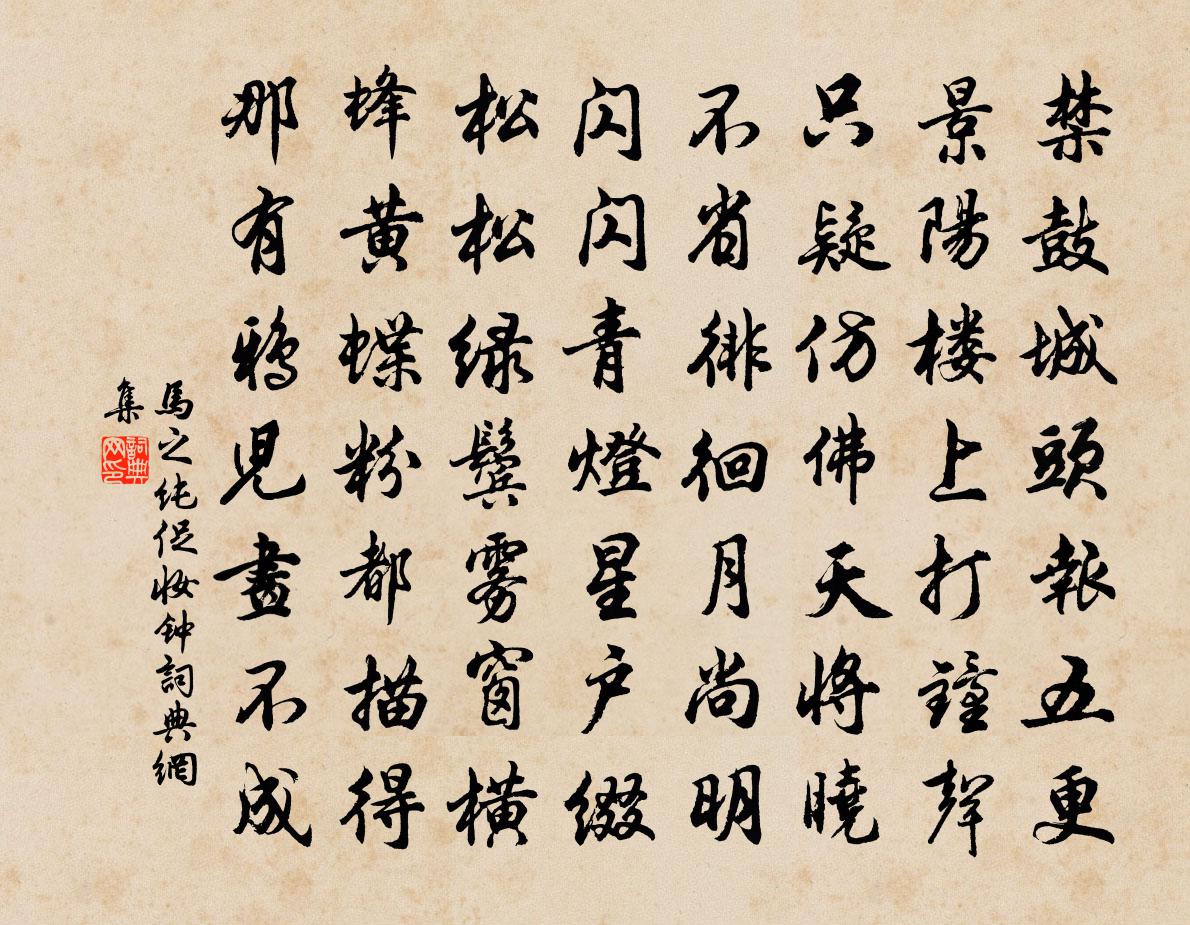 禁鼓城頭報五更
景陽楼上打鐘聲
只疑仿佛天將曉
不省徘徊月尚明
閃閃青燈星户缀
松松绿鬓雾窗横
蜂黄蝶粉都描得
那有鴉兒畫不成
馬之纯促妆钟詞典網
集
詞典网印